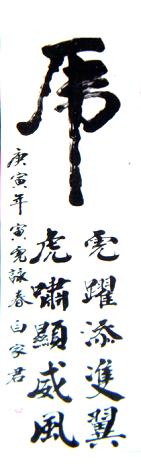 虎
虎躍添雙翼
虎嘯顯威風
庚寅年寅虎詠春白家君